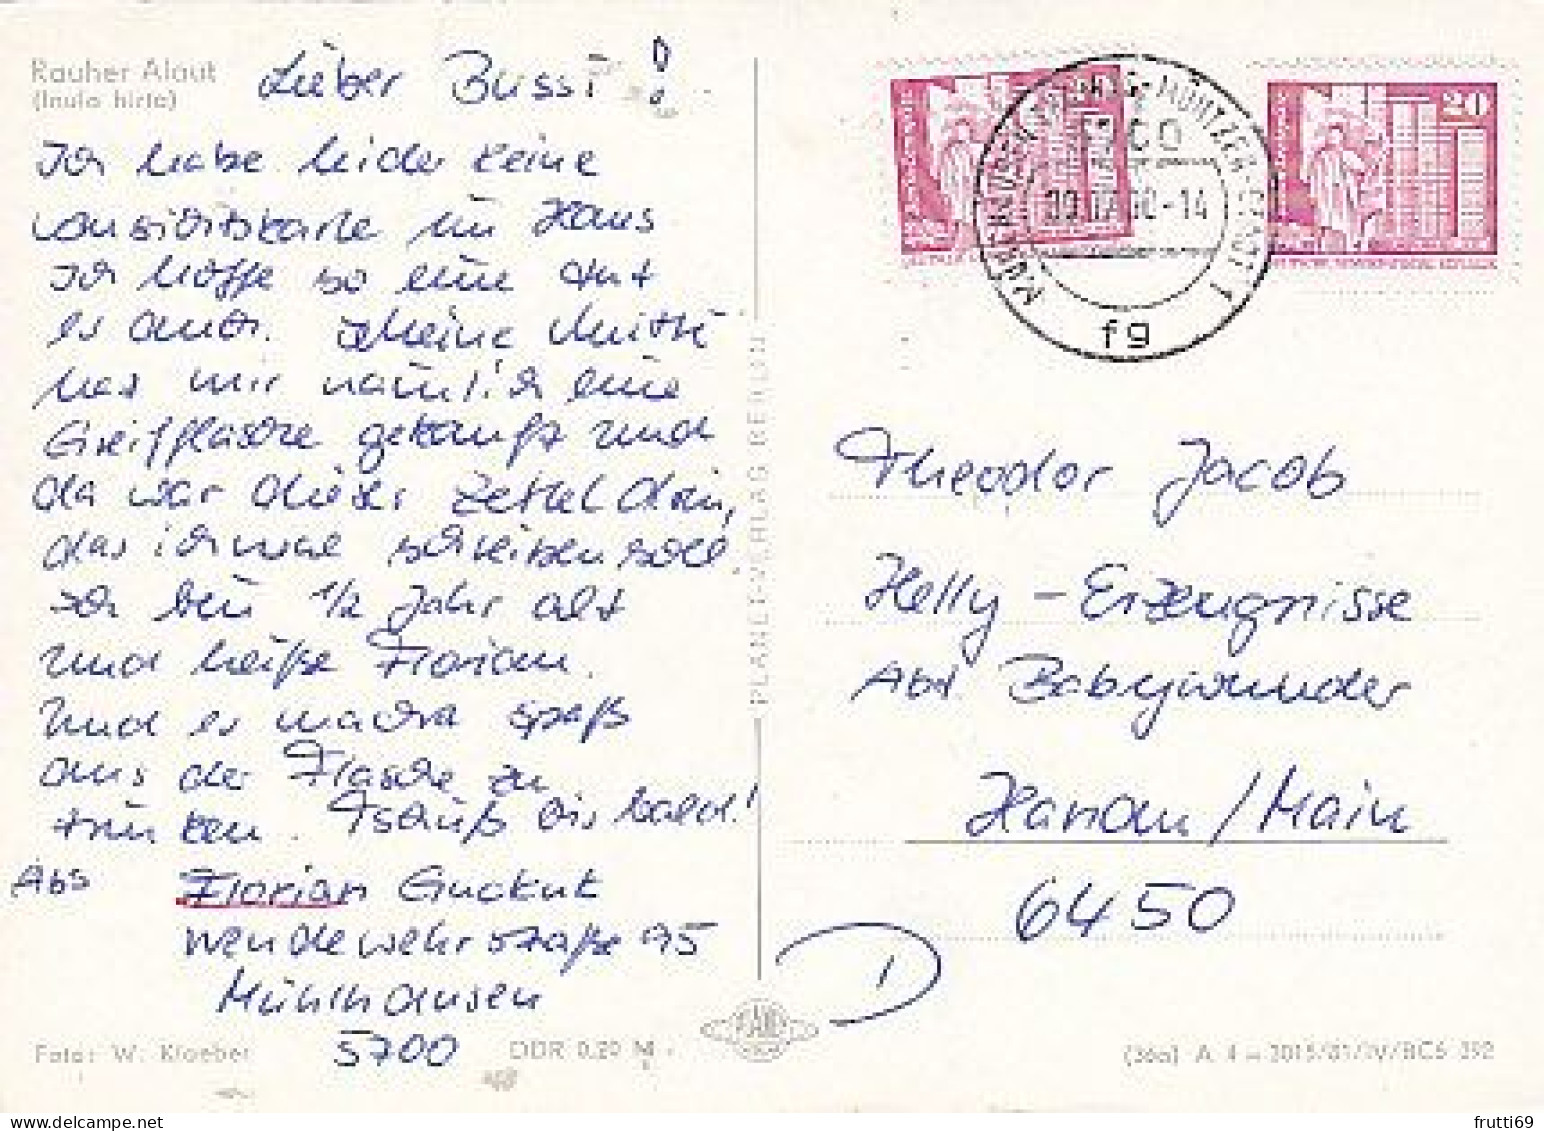 Rauher Alant
(Inula hirta)
Lieber Bussi!
Ich habe leider keine
Lansichtskarte im Haus
Ich hoffe so eine tut
es auch. Meine Mutti
hat mir nämlich eine
Greifflasche gekauft und
da war dieser Zettel drin,
das ich mal schreiben soll
Ich bin 1/2 Jahr alt
und heiße Florian.
Und es macht spaß
aus der Flasche zu
trinken. Tschüß bis bald!
Abs Florian Guckuk
Wendewehrstraße 95
Mühlhausen
5700
Foto: W. Kloeber
DDR 0,20 M
PLANET-VERLAG BERLIN
PLANET
20
THOMAS-MÜNTZER-STADT 1
5700
-14
fg
Theodor Jacob
Helly - Erzeugnisse
Abt Babywunder
Hanau/Main
6450
D
frutti69